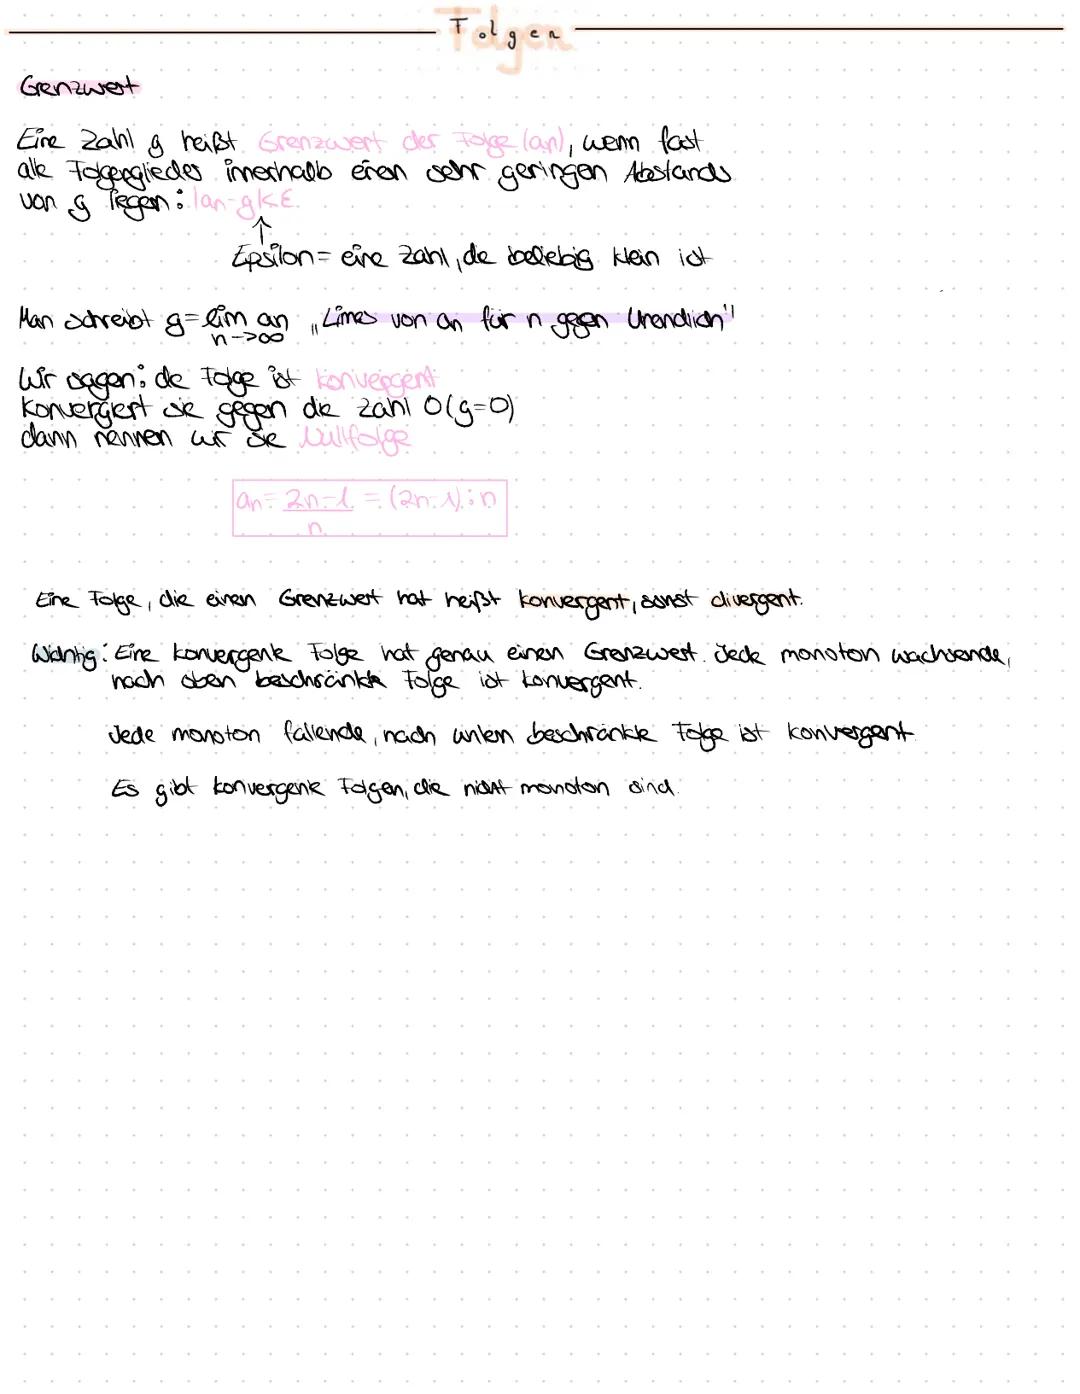 Folgen
Grenzwert
Eine Zahl g heißt Grenzwert der Folge (an), wenn fast
alle Folgenglieder innerhalb eines sehr geringen Abstands
von g liegen: |an-g|<ε
↑
Epsilon = eine Zahl, die beliebig klein ist
Man schreibt g = lim an „Limes von an für n gegen Unendlich"
n->∞
Wir sagen: die Folge ist konvergent
Konvergiert sie gegen die Zahl 0 (g=0)
dann nennen wir sie Nullfolge
an = 2n-1 = (2n-1):n
n
Eine Folge, die einen Grenzwert hat heißt konvergent, sonst divergent.
Wichtig: Eine konvergente Folge hat genau einen Grenzwert. Jede monoton wachsende,
nach oben beschränkte Folge ist konvergent.
Jede monoton fallende, nach unten beschränkte Folge ist konvergent
Es gibt konvergente Folgen, die nicht monoton sind.